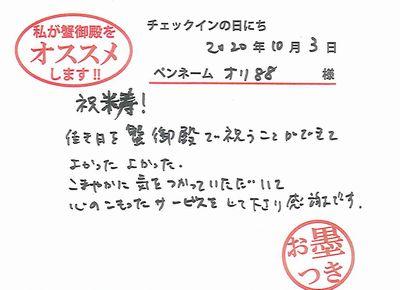 私が蟹御殿を
オススメ
します!!
チェックインの日にち
2020年10月3日
ペンネーム オリ88 様
祝米寿!
佳き日を蟹御殿で祝うことができて
よかったよかった.
こまやかに気をつかっていただいて
心のこもったサービスをして下さり感謝です.
お墨
つき